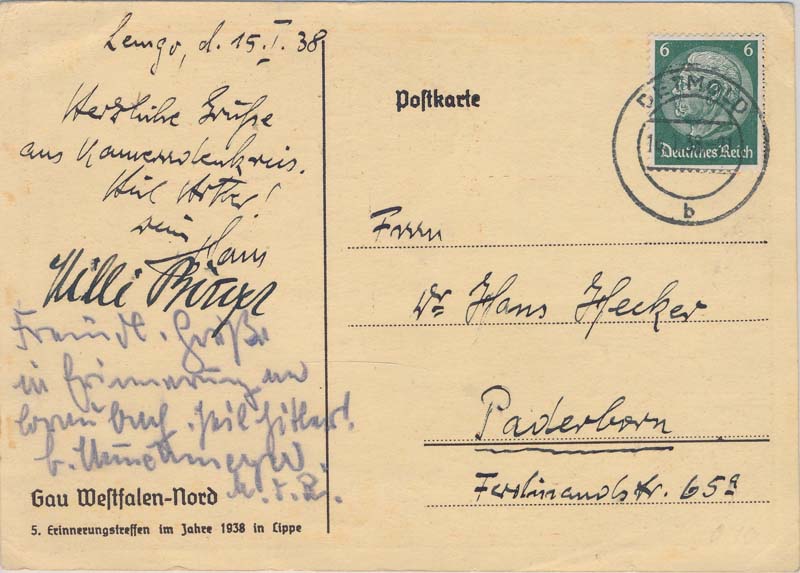 Lemgo, d. 15.I.38
Herzliche Grüße
aus Kameradenkreis.
Heil Hitler!
dein Hein
Willi
Freundl. Grüße
in Erinnerung an
Heil Hitler!
Gau Westfalen-Nord
5. Erinnerungstreffen im Jahre 1938 in Lippe
Postkarte
6 6
Deutsches Reich
DETMOLD
b
Herrn
Dr Hans Hecker
Paderborn
Ferdinandstr. 65a